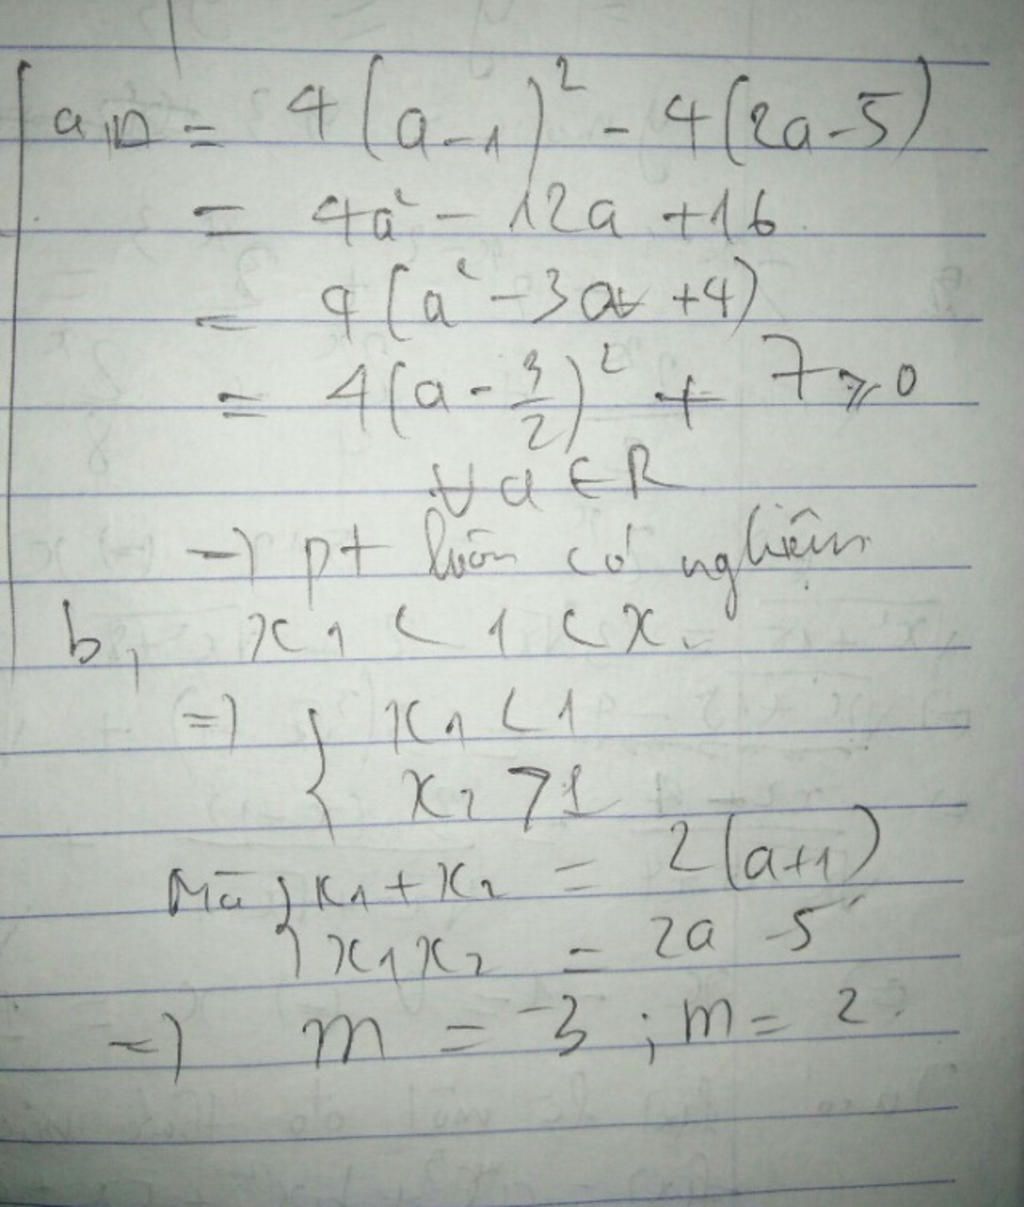 a, Δ = 4(a-1)² - 4(2a-5)
= 4a² - 12a + 16
= 4(a² - 3a + 4)
= 4(a - 3/2)² + 7 ⩾ 0
∀ a ∈ R
=) pt luôn có nghiệm
b, x₁ < 1 < x₂
=) { x₁ < 1
x₂ > 1
Mà { x₁ + x₂ = 2(a+1)
x₁x₂ = 2a - 5
=) m = -3 ; m = 2